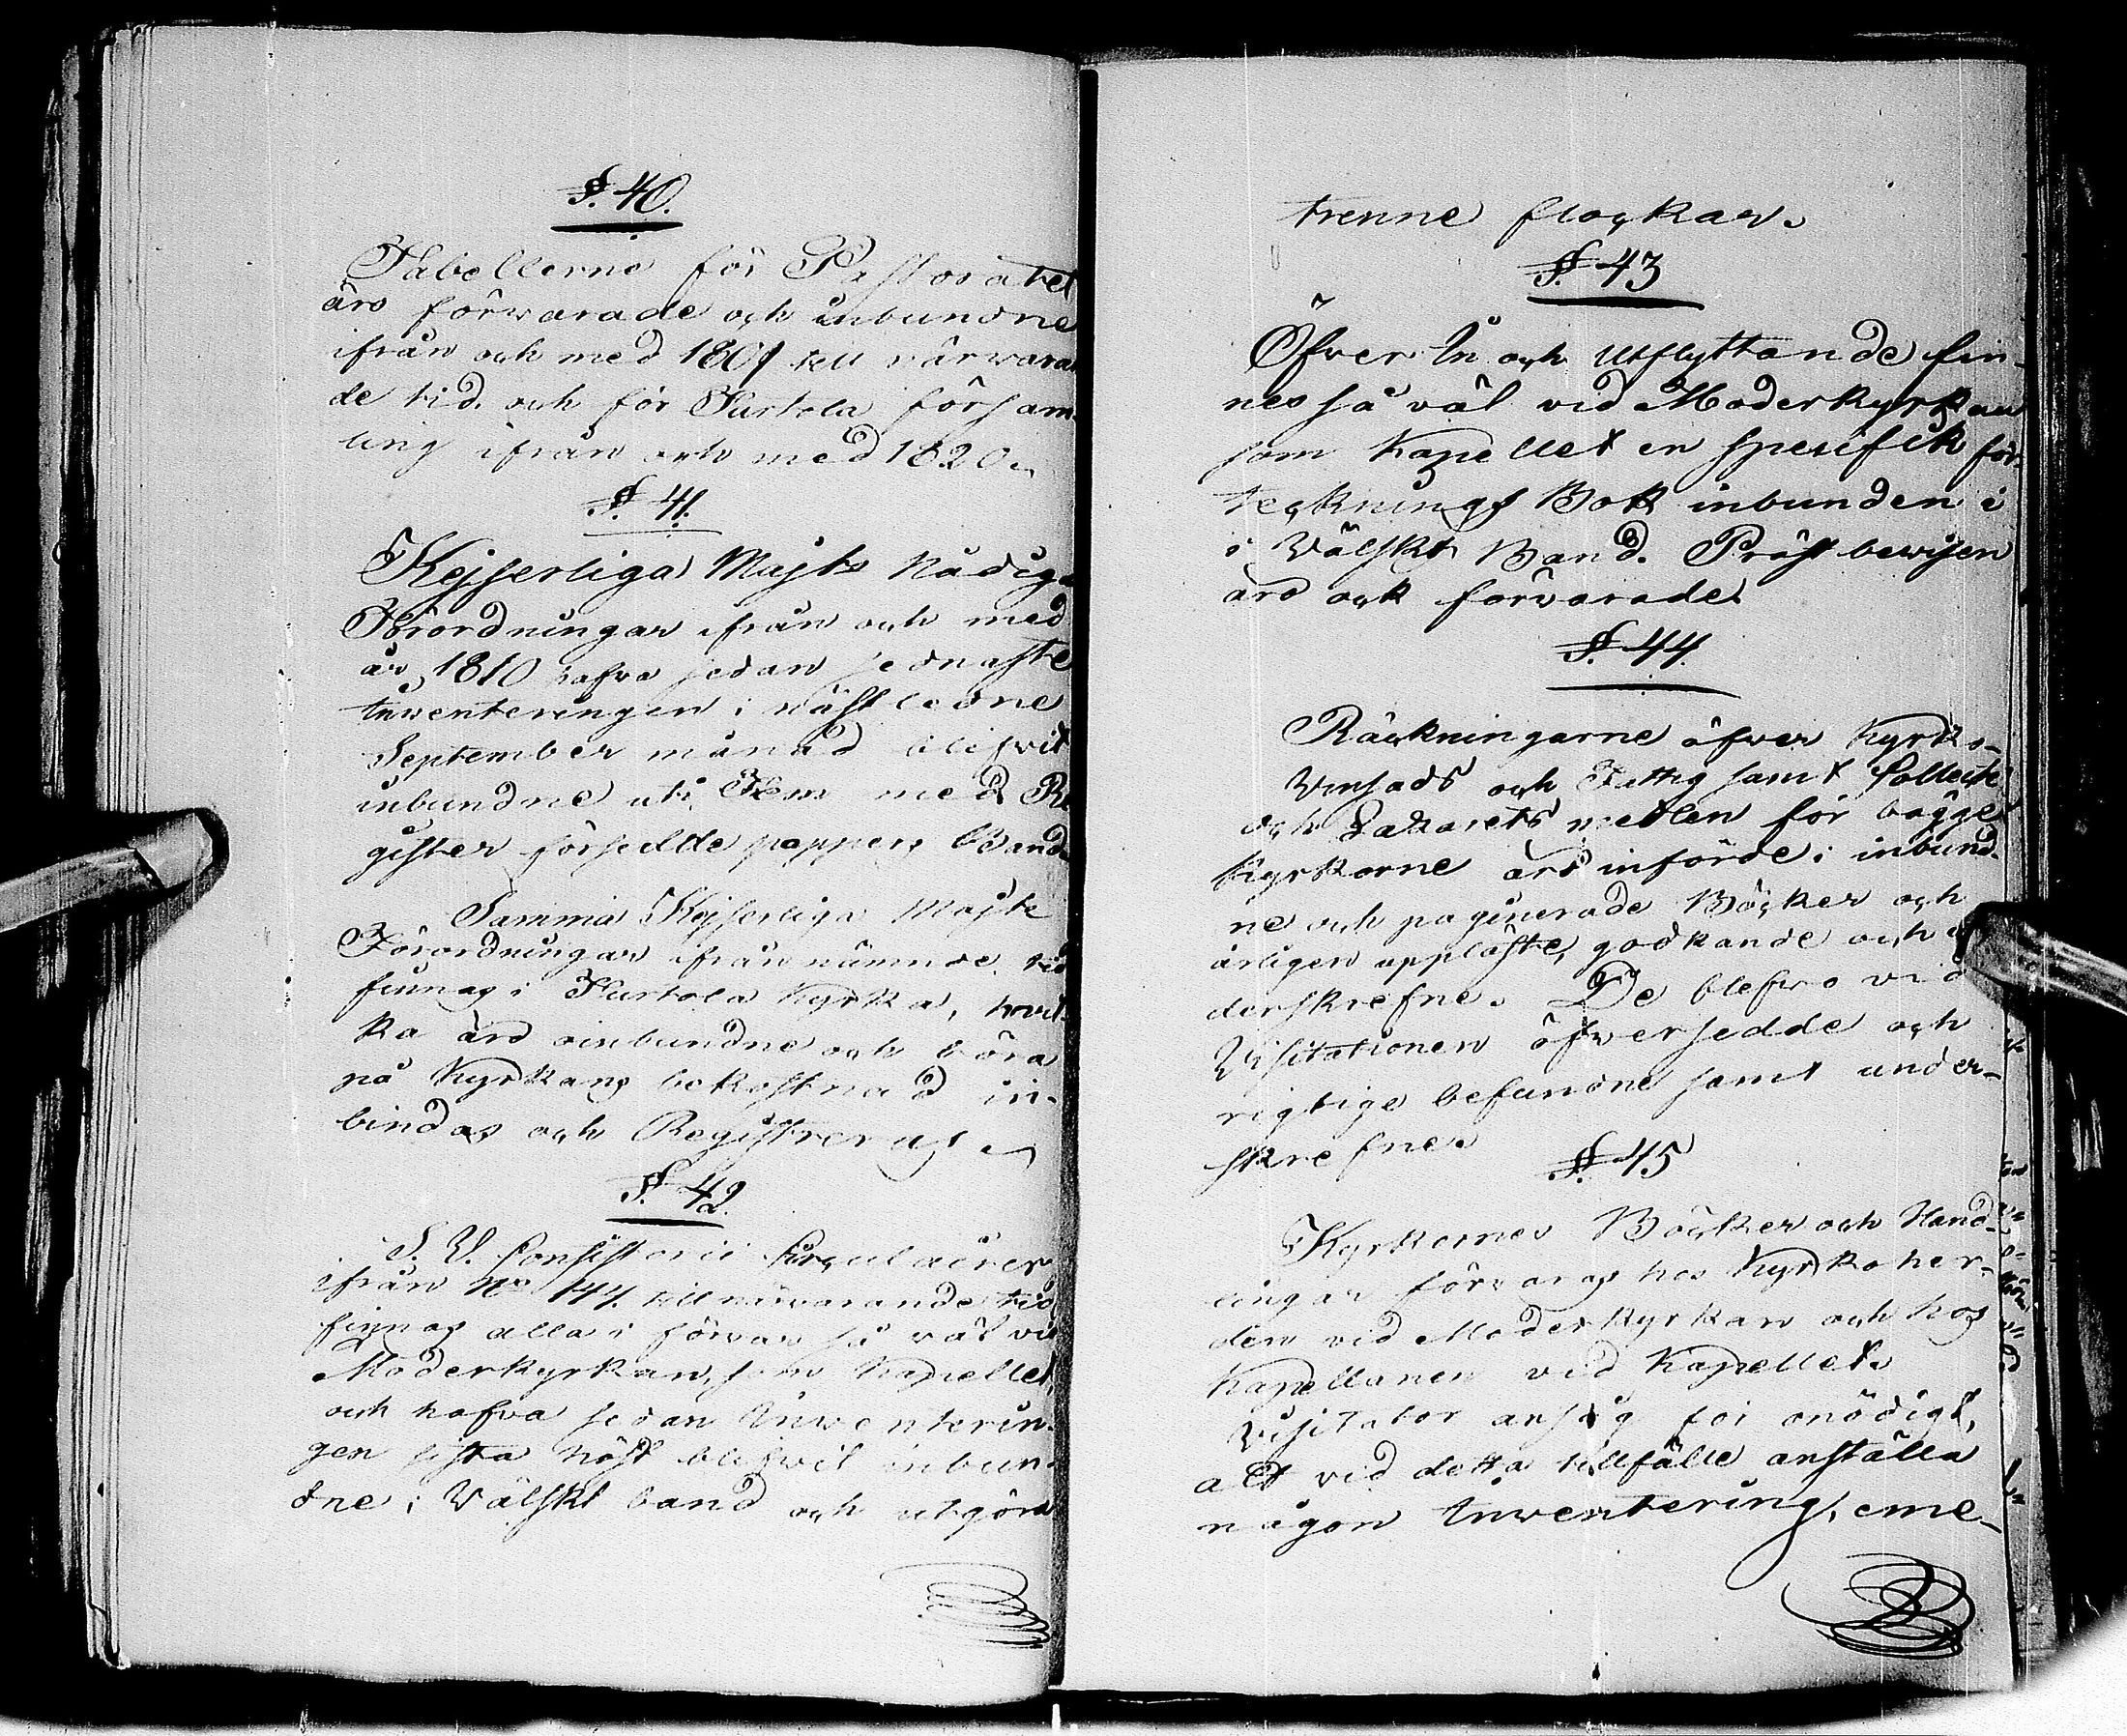 §. 40.
Tabellerne för Pastoratet
äro förwarade och inbundne
ifrån och med 1801 till närwaran
de tid. och för Turtola försam-
ling ifrån och med 1820.
§. 41.
Kejserliga Majts Nådiga
Förordningar ifrån och med
år 1810 hafva sedan sednaste
Inwenteringen i nästledne
September månad blifwit
inbundne uti Fem med Re
gister försedde pappers Band.
Samma Kejserliga Majts
Förordningar ifrån nämnde tid
finnas i Turtola Kyrka, hvil-
ka äro oinbundne och böra
på Kyrkans bekostnad in-
bindas och Registreras.
§. 42.
S. V. Consistorii Circulairer
ifrån No 144. till närvarande tid
finnas alla i förvar så väl vid
Moderkyrkan, som Kapellet,
och hafva sedan Inwenterin-
gen sista höst blifwit inbun-
dne i Välskt band och utgöra
trenne flockar.
§. 43
Öfver In och Utflyttande fin-
nes så väl vid Moderkyrkan
som Kapellet en specifik för-
tecknings Bok inbunden i
i Välskt Band. Präst bewisen
äro ock förvarade.
§. 44.
Räckningarne öfver Kyrko-
Winsads och Fattig samt Collect
och Lazarets medlen för bägge
Kyrkorne äro införde i inbund-
ne och paginerade Böcker och
årligen uppläste, godkände och un
derskrefne. De blefwo vid
Visitationen öfversedde och
rigtige befundne samt under-
skrefne.
§. 45
Kyrkornes Böcker och Hand-
lingar förvaras hos Kyrkoher-
den vid Moderkyrkan och hos
Kapellanen vid Kapellet.
Visitator ansåg för onödigt,
att vid detta tillfälle anställa
någon Inwentering, eme-